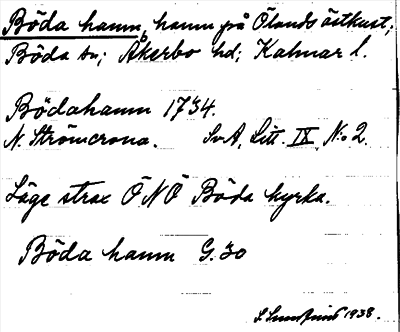 Böda hamn, hamn på Ölands östkust;
Böda sn; Åkerbo hd; Kalmar l.
Bödahamn 1734.
N. Strömcrona. SvA, Litt. IX, No 2.
Läge strax ÖNÖ Böda kyrka.
Böda hamn G. 30
1938.